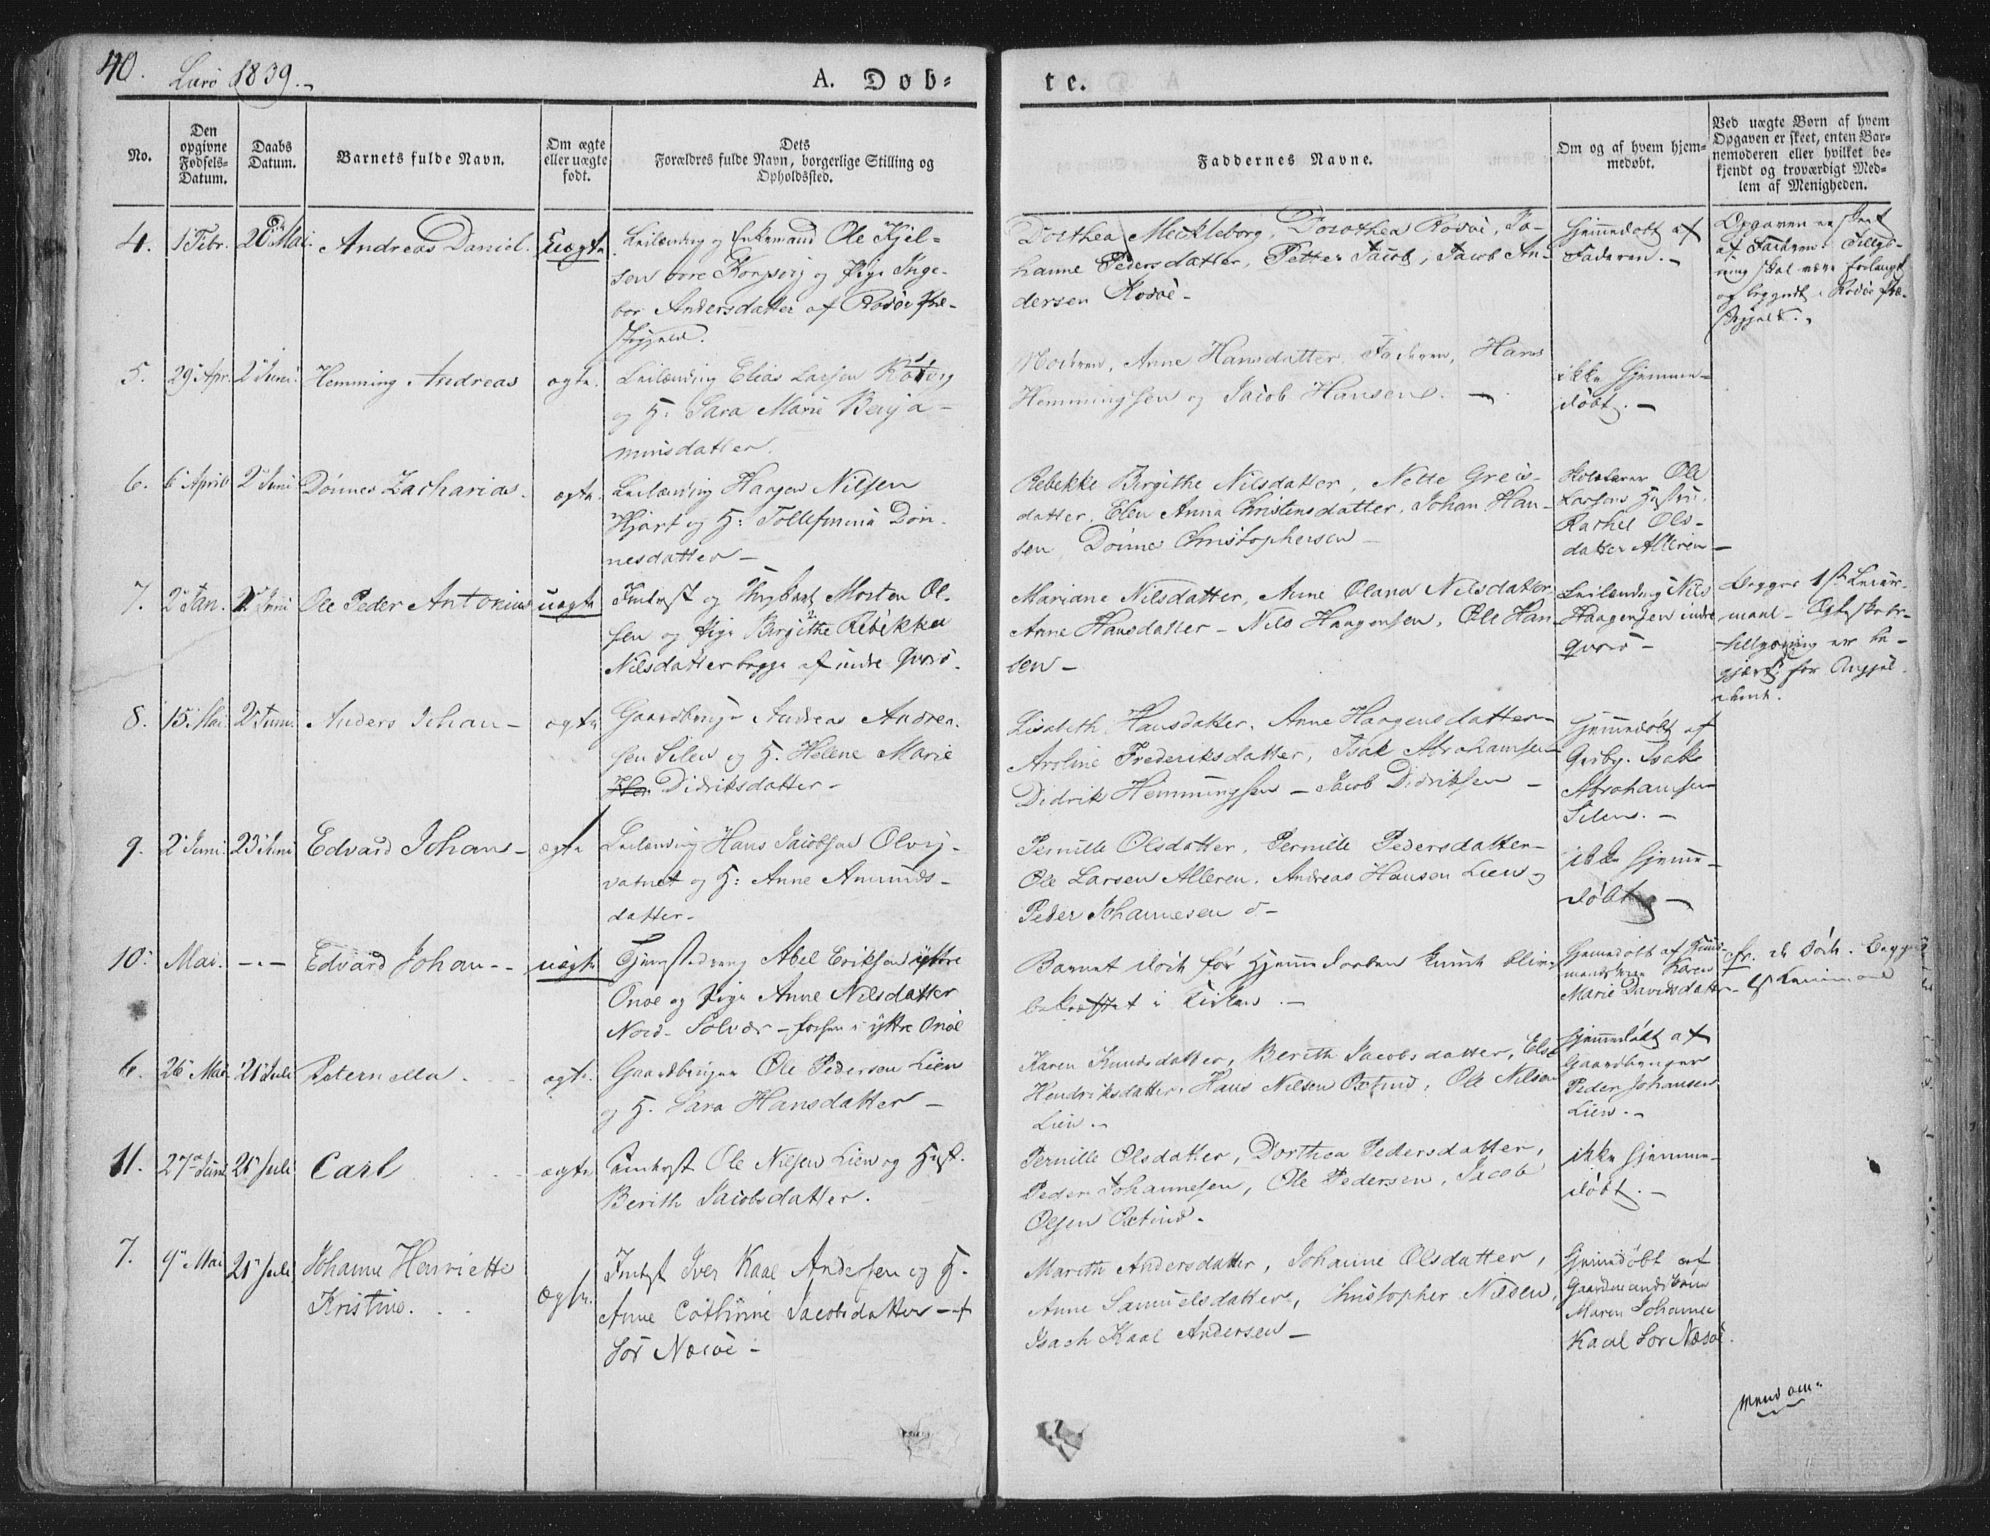 40. Lurø 1839.
A. Døb-
te.
No.
Den opgivne Fødsels-Datum.
Daabs Datum.
Barnets fulde Navn.
Om ægte eller uægte født.
Dets
Forældres fulde Navn, borgerlige Stilling og
Opholdssted.
Faddernes Navne.
Om og af hvem hjem-
medøbt.
Ved uægte Børn af hvem
Opgaven er skeet, enten Bar-
nemoderen eller hvilket be-
kjendt og troværdigt Med-
lem af Menigheden.
4. 1 Febr. 20 Mai. Andreas Daniel. Uægte
Leilænding og Enkemand Ole Kjel-
sen og Pige Inge-
bor Andersdatter af Rødøe Præ-
stegjeld.
Dorthea Meckleborg, Dorothea Rødøe, Jo-
hanne Pedersdatter, Petter Jacob, Jacob An-
dersen Rødøe -
Hjemmedøbt af
Faderen. -
Opgaven er skeet
af Faderen.
5. 29 Apr. 2 Juni. Hemming Andreas ægte.
Leilænding Elias Larsen
og H: Sara Marie Benja-
minsdatter.
Moderen, Anne Hansdatter, Faderen, Hans
Hemmingsen og Jacob Hansen. -
ikke Hjemme-
døbt. -
6. 6 April 2 Juni Dønnes Zacharias. ægte.
Leilænding Haagen Nilsen
Hjart og H: Tollefmina Døn-
nesdatter -
Rebekke Birgithe Nilsdatter, Nette Greis-
datter, Elen Anna Christensdatter, Johan Han-
sen Dønne Christophersen -
Ole
Larsens Hustru,
Rachel Ols-
datter Alleren -
7. 2 Jan. 2 Juni Ole Peder Antonius uægte
Inderst og Ungkarl Morten Ol-
sen og Pige Birgithe Rebekka
Nilsdatter begge af indre Qvarø.
Mariane Nilsdatter, Anne Olana Nilsdatter
Anne Hansdatter - Nils Haagensen, Ole Han-
sen -
Leilænding Nils
Haagensen indre
Qvarø -
Begges 1ste Leier-
maal -
8. 15 Mai 2 Juni. Anders Johan - ægte
Gaardbruger Andreas Andrea-
sen Silen og H. Helene Marie
Didriksdatter -
Lisabeth Hansdatter, Anne Haagensdatter -
Aroline Frederiksdatter, Isak Abrahamsen -
Didrik Hemmingsen - Jacob Didriksen -
Hjemmedøbt af
Grby. Isak
Abrahamsen
Silen. -
9. 2 Juni 23 Juni Edvard Johan - ægte
Leilænding Hans Jacobsen Olvig-
vatnet og H: Anne Amunds-
datter -
Pernille Olsdatter, Pernille Pedersdatter -
Ole Larsen Alleren, Andreas Hansen Lien og
Peder Johannesen -
ikke Hjemme-
døbt -
10. Mai. - - - Edvard Johan - - uægte
Tjenestedreng Abel Eriksen yttre
Onøe og Pige Anne Nilsdatter
Nord-Solvær - yttre Onøe
Barnet døde før Hjemmedaaben kunde blive
bekræftet i Kirken. -
Hjemmedøbt af
Karen
Marie Davidsdatter -
6. 26 Mai 21 Juli Peternella. ægte.
Gaardbruger Ole Pedersen Lien
og H. Sara Hansdatter -
Karen Knudsdatter, Berith Jacobsdatter, Else
Hendriksdatter, Hans Nilsen Oxtind, Ole Nilsen
Lien. -
Hjemmedøbt af
Gaardbruger
Peder Johansen
Lien. -
11. 27 Juni 21 Juli Carl ægte
Inderst Ole Nilsen Lien og Hust.
Berith Jacobsdatter.
Pernille Olsdatter, Dorthea Pedersdatter,
Peder Johannesen, Ole Pedersen, Jacob
Olsen Oxtind.
ikke Hjemme-
døbt. -
7. 9 Mai 21 Juli Johanne Henriette
Kristine. Ægte.
Inderst Iver Kaal Andersen og H.
Anne Cathrine Jacobsdatter - af
Sør Næsøe -
Mareth Andersdatter, Johanne Olsdatter,
Anne Samuelsdatter, Christopher Nilsen,
Isach Kaal Andersen -
Hjemmedøbt af
Gaardmandskone
Maren Johanne
Kaal Sør Næsøe.
vend om